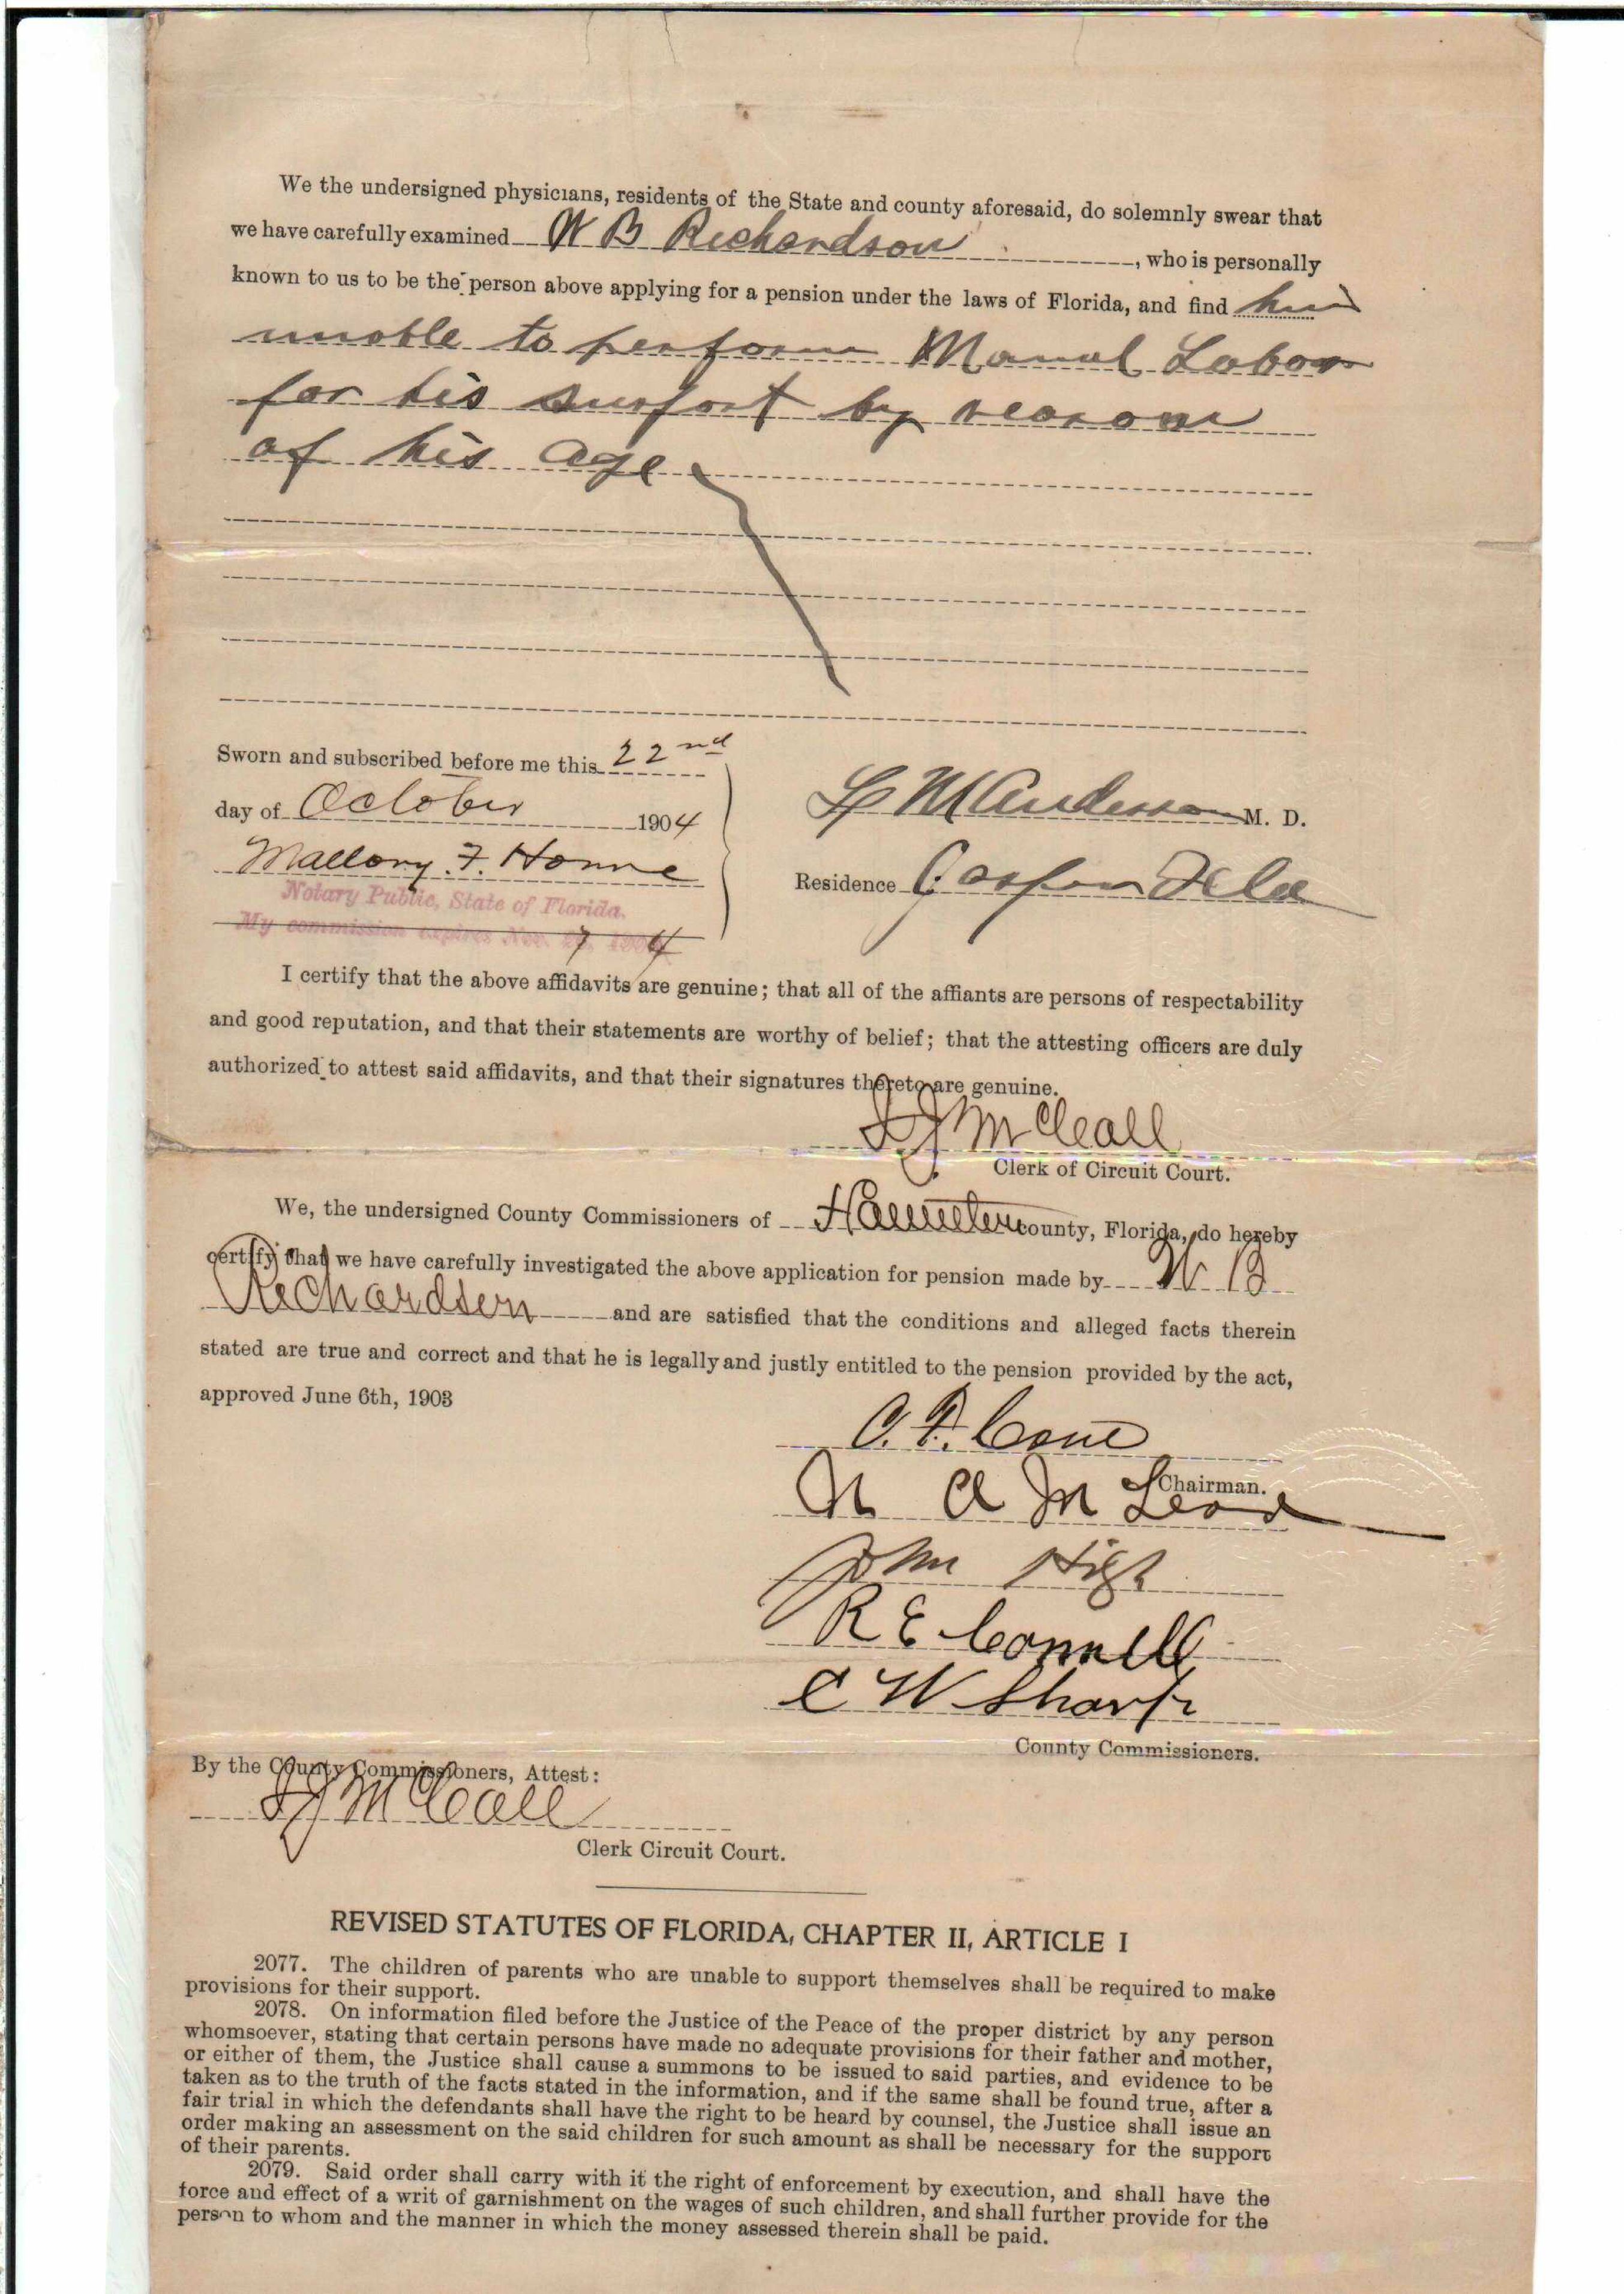 We the undersigned physicians, residents of the State and county aforesaid, do solemnly swear that
we have carefully examined W B Richardson, who is personally
known to us to be the person above applying for a pension under the laws of Florida, and find him
unable to perform Manual Labor
for his support by reason
of his age
Sworn and subscribed before me this 22nd
day of October 1904
Mallory F. Horne
Notary Public, State of Florida.
My commission expires Nov.
M Anderson M. D.
Residence Jasper Fla
I certify that the above affidavits are genuine; that all of the affiants are persons of respectability
and good reputation, and that their statements are worthy of belief; that the attesting officers are duly
authorized to attest said affidavits, and that their signatures thereto are genuine.
McCall
Clerk of Circuit Court.
We, the undersigned County Commissioners of Hamilton county, Florida, do hereby
certify that we have carefully investigated the above application for pension made by W B
Richardson and are satisfied that the conditions and alleged facts therein
stated are true and correct and that he is legally and justly entitled to the pension provided by the act,
approved June 6th, 1903
Cone
Chairman.
N A McLeod
John High
R E Connell
C W Sharp
County Commissioners.
By the County Commissioners, Attest:
McCall
Clerk Circuit Court.
REVISED STATUTES OF FLORIDA, CHAPTER II, ARTICLE I
2077. The children of parents who are unable to support themselves shall be required to make
provisions for their support.
2078. On information filed before the Justice of the Peace of the proper district by any person
whomsoever, stating that certain persons have made no adequate provisions for their father and mother,
or either of them, the Justice shall cause a summons to be issued to said parties, and evidence to be
taken as to the truth of the facts stated in the information, and if the same shall be found true, after a
fair trial in which the defendants shall have the right to be heard by counsel, the Justice shall issue an
order making an assessment on the said children for such amount as shall be necessary for the support
of their parents.
2079. Said order shall carry with it the right of enforcement by execution, and shall have the
force and effect of a writ of garnishment on the wages of such children, and shall further provide for the
person to whom and the manner in which the money assessed therein shall be paid.